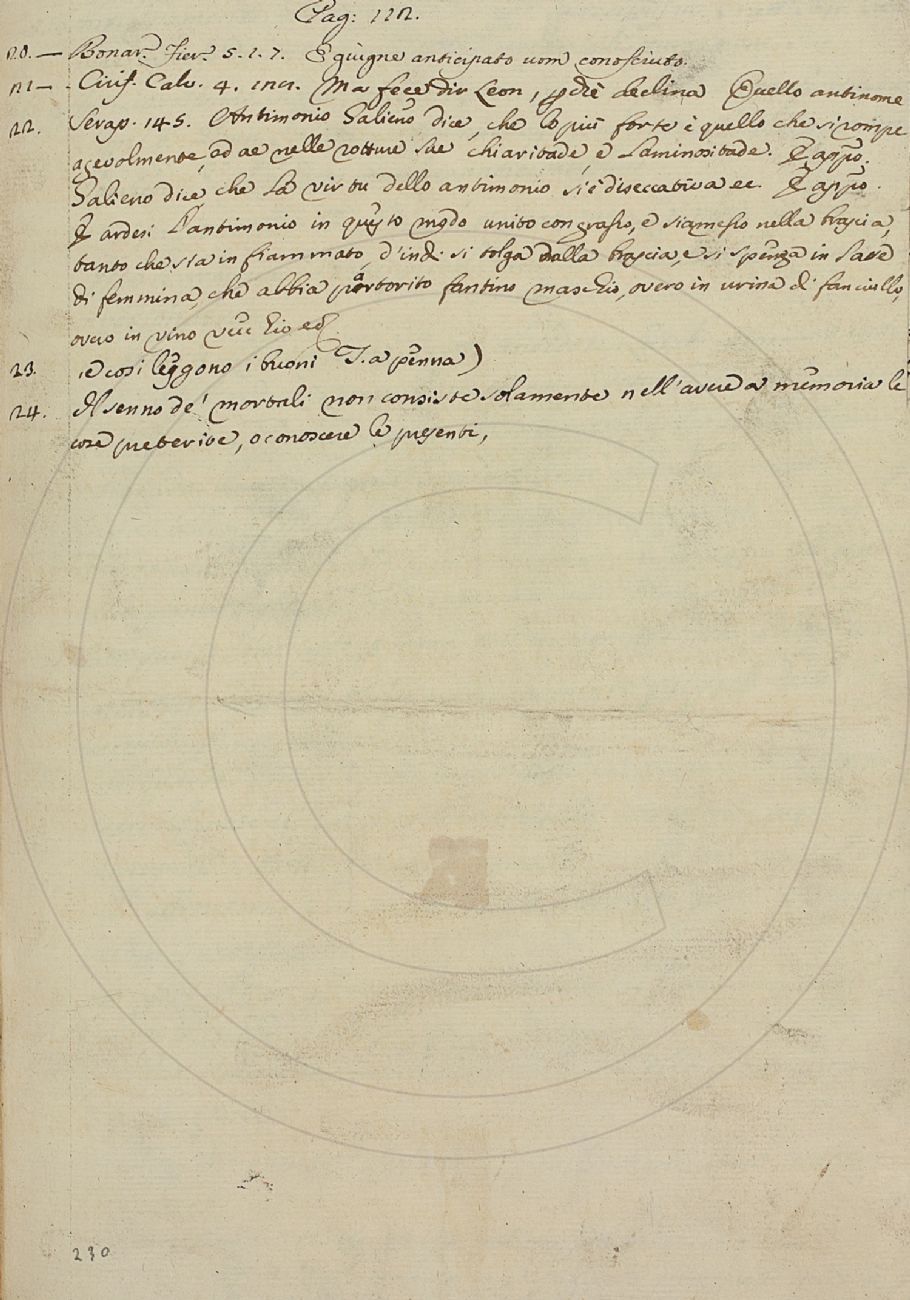 Pag: 112.
20. — Bonar. Fier. 5. 2. 7. E giugne anticipato uom conosciuto.
21 — Cirif. Calv. 4. 121. Ma fece dir Leon, declina Quello antinome
22. Serap. 145. Antimonio Galieno dice, che lo più forte è quello che si rompe
agevolmente, ad ae nelle rotture sue chiaritade, e laminositade. E appo.
Galieno dice che la virtu dello antimonio si è diseccativa ec. E appo.
E ardesi l'antimonio in questo modo unito con grasso, e sia messo nella brascia,
tanto che sia infiammato, d'indi si tolga dalla brascia, e si spenga in latte
di femmina, che abbia partorito fantino maschio, overo in urina di fanciullo,
overo in vino vecchio ec.
23. , e cosi leggono i buoni T. a penna)
24. Il senno de' mortali non consiste solamente nell'avere a memoria le
cose preterite, o conoscere le presenti,
230